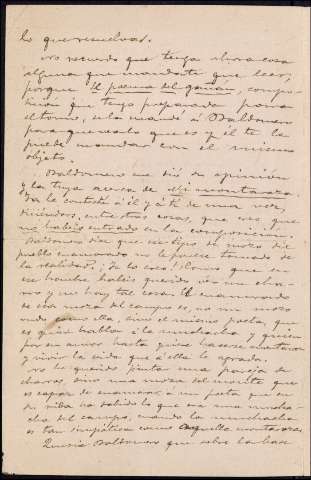 lo que resuelvas.
No recuerdo que tenga ahora cosa
alguna que mandarte que leer,
porque El poema del gañán, compo-
sición que tengo preparada para
el tomo, se la mandé a Baldomero
para que vea lo que es y él te la
puede mandar con el mismo
objeto.
Baldomero me dió su opinión
y la tuya acerca de Mi montaraza.
Ya le contesté á él y á ti de una vez,
diciéndoos, entre otras cosas, que creo que
no habéis entrado en la composición.
Baldomero dice que ese tipo de mozo del
pueblo enamorado no le parece tomado de
la realidad; ¡Ya lo creo! Como que en
ese habéis querido ver un charro
y no hay tal cosa. El enamorado
de esa moza del campo es, no un mozo
como ella, sino el mismo poeta, que
es quien habla á la muchacha y quien
por su amor hasta quiere hacerse montaraz
y vivir la vida que á ella le agrada.
No he querido pintar una pareja de
charros, sino una moza del monte que
es capaz de enamorar á un poeta que en
su vida ha sabido lo que era una mucha-
cha del campo, cuando la muchacha
es tan simpática como aquella montaraza.
Quería Baldomero que sobre la base